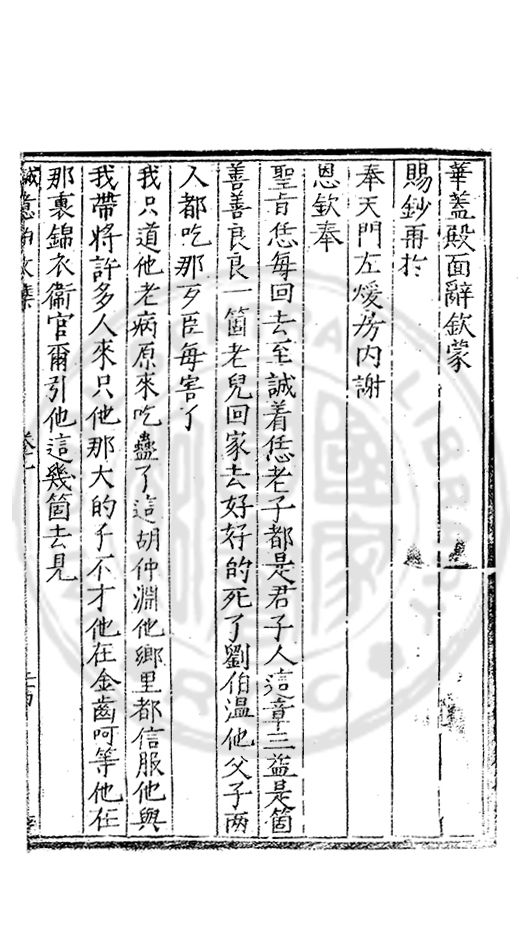 華蓋殿面辭欽蒙
賜鈔再扵
奉天門左煖房内謝
恩欽奉
聖旨恁每回去至誠着恁老子都是君子人這章三益是箇
善善良良一箇老兒回家去好好的死了劉伯温他父子兩
人都吃那歹臣每害了
我只道他老病原來吃蠱了這胡仲淵他鄉里都信服他與
我帶將許多人來只他那大的子不才他在金齒呵等他在
那裏錦衣衞官爾引他這幾箇去見